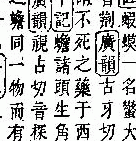 蝦蟆一名蟹大
旹廣韻古牙切
不死之藥于西
記蟾諸頭生角
廣韻視占切音棎
之蟾同一物而有